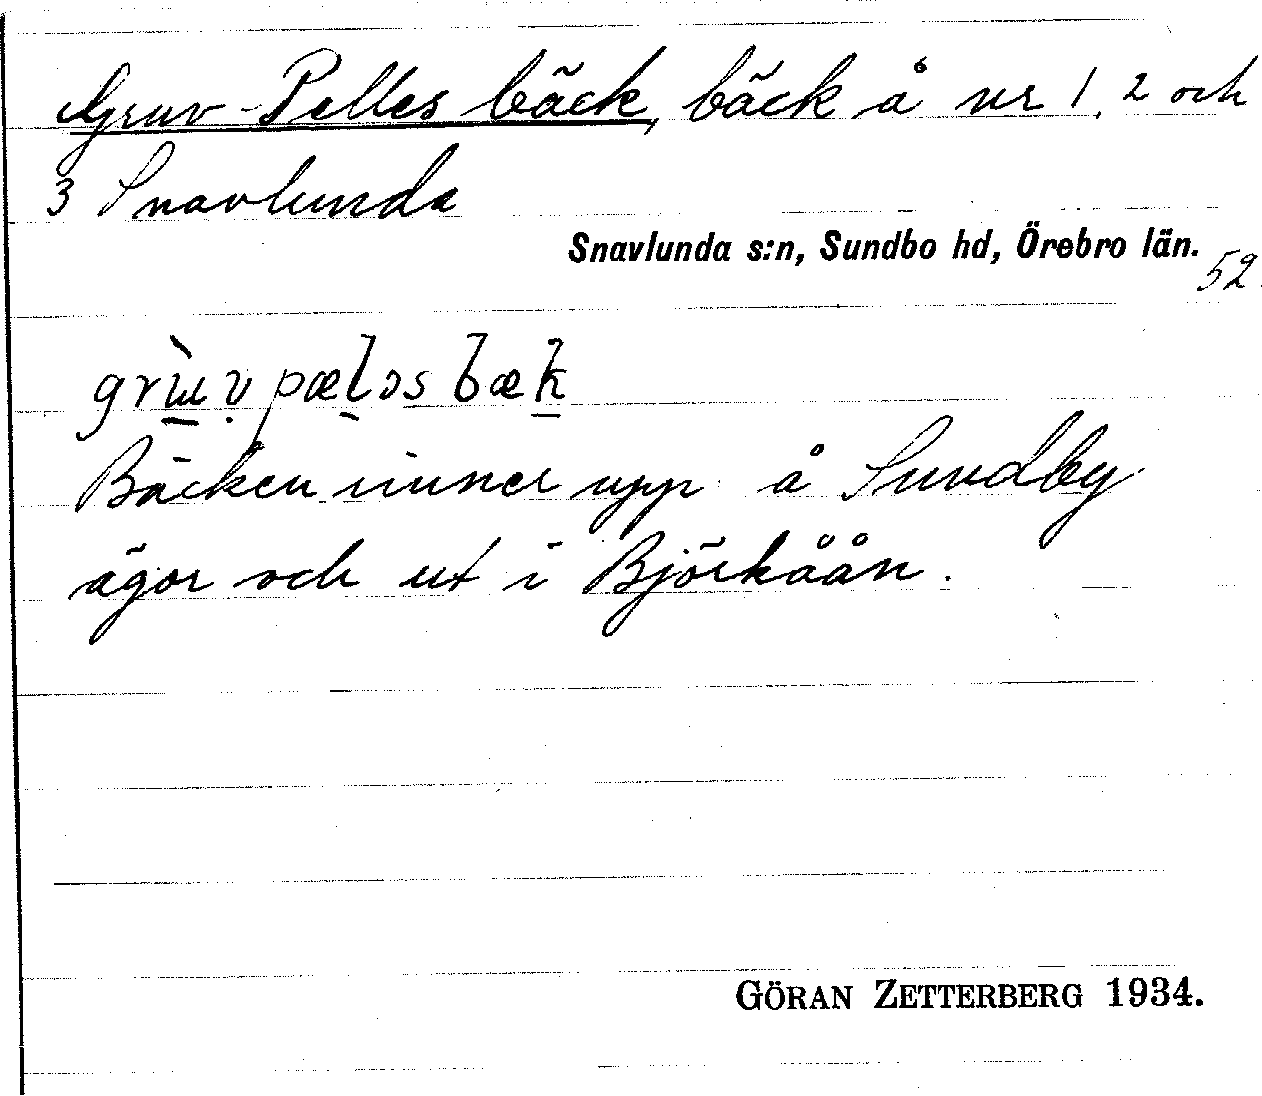 Gruv-Pelles bäck, bäck å nr 1, 2 och
3 Snavlunda
Snavlunda s:n, Sundbo hd, Örebro län.
52
grɯ̀v pæləs bæk
Bäcken rinner upp å Sundby
ägor och ut i Björkåån.
GÖRAN ZETTERBERG 1934.